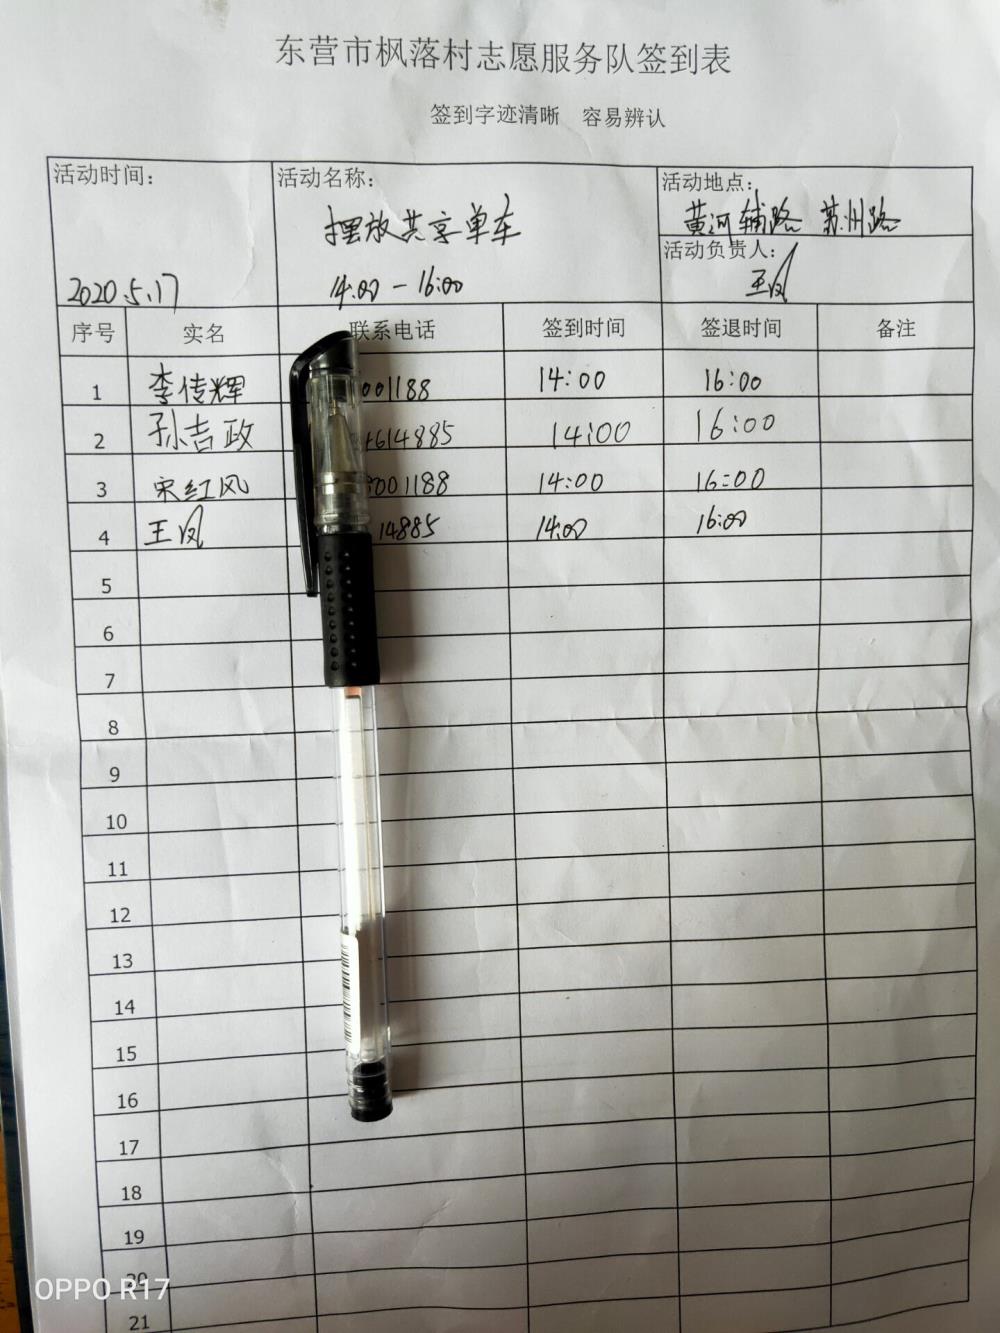 东营市枫落村志愿服务队签到表
签到字迹清晰 容易辨认
活动时间: 活动名称: 活动地点:
摆放共享单车 黄河辅路 苏州路
活动负责人:
2020.5.17 14:00-16:00 王凤
序号 实名 联系电话 签到时间 签退时间 备注
1 李传辉 001188 14:00 16:00
2 孙吉政 614885 14:00 16:00
3 宋红风 001188 14:00 16:00
4 王凤 14885 14:00 16:00
5
6
7
8
9
10
11
12
13
14
15
16
17
18
19
20
21
OPPO R17